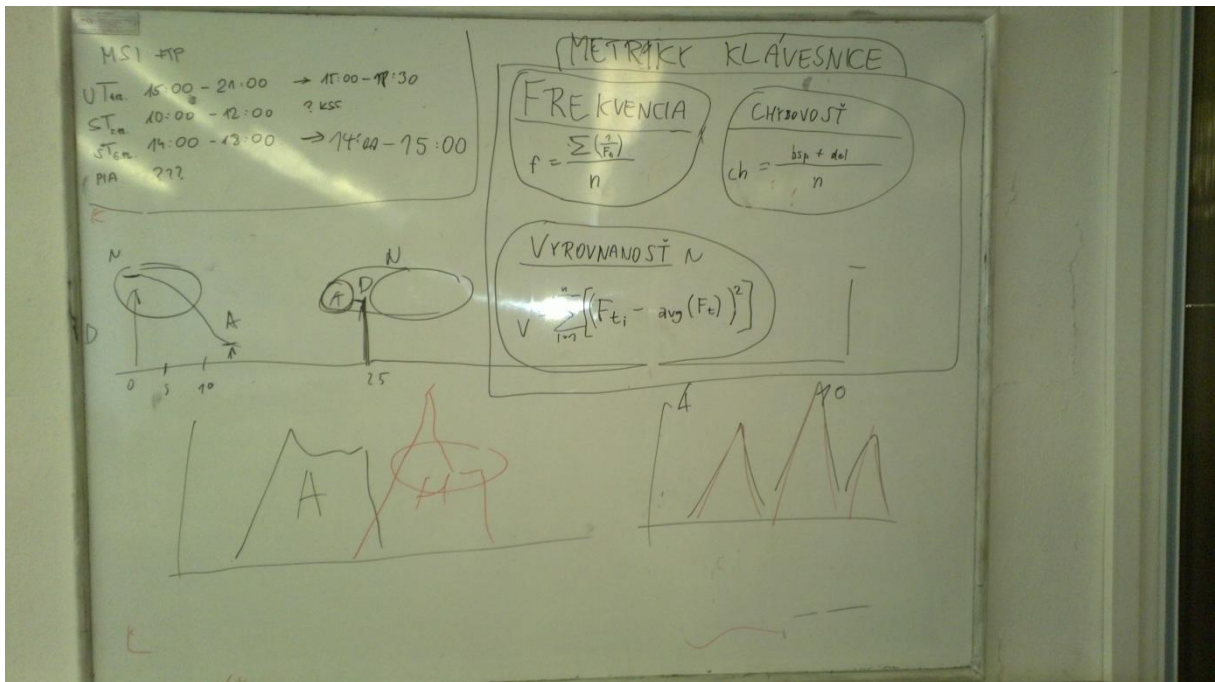 MSI + TP
UT 15:00 - 21:00 → 15:00 - 18:30
ST 10:00 - 12:00 ? KSS
ST 14:00 - 18:00 → 14:00 - 15:00
PIA ???
METRIKY KLÁVESNICE
FREKVENCIA
f = ∑(1/Ft) / n
CHYBOVOSŤ
ch = bsp + del / n
VYROVNANOSŤ N
V = ∑ n i=1 [(Fti - avg(Ft))²]
K
N
A
D
0 5 10
N
A D
25
A
A
L